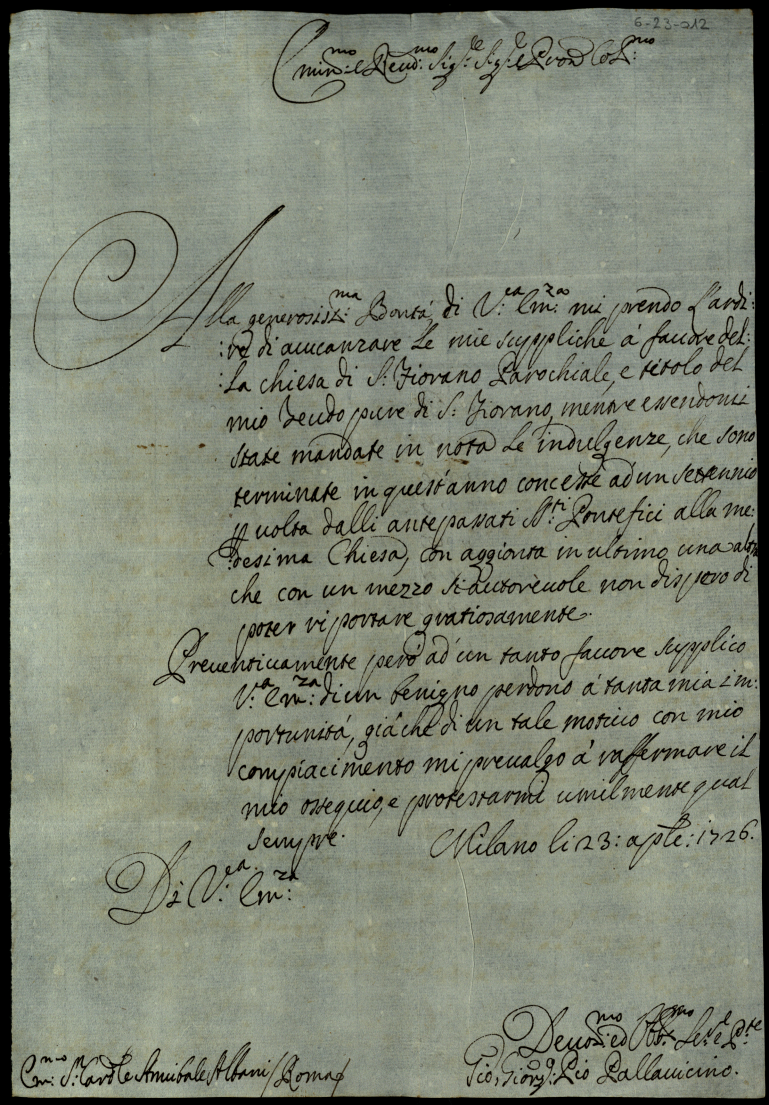 6-23-012
Emin:mo e Reud:mo Sig:re Sig:re e Pron Col:mo
Alla generosiss:ma Bontá di V:ra Em:za mi prendo L'ardi:
:re di auuanzare Le mie suppliche á fauore del:
:La chiesa di S: Fiorano Parochiale, e titolo del
mio Feudo pure di S: Fiorano, mentre essendomi
state mandate in nota Le indulgenze, che sono
terminate in quest'anno concesse ad un settennio
p volta dalli antepassati S:ti Pontefici alla me:
:desima Chiesa, con aggionta in ultimo una altra
che con un mezzo si autoreuole non dispero di
poter riportare gratiosamente.
Preuentiuamente peró ad un tanto fauore supplico
V:a Em:za di un benigno perdono á tanta mia im:
portunitá, giá che di un tale motiuo con mio
compiacimento mi preualgo á raffermare il
mio ossequio, e protestarmi umilmente qual
sempre. Milano li 23: aple: 1726.
Di V:ra Em:za
Deuot:mo ed Obb:mo Se:re e P:te
Gio: Giorg:o Pio Pallauicino.
Em:mo S:r Card:le Annibale Albani / Roma /